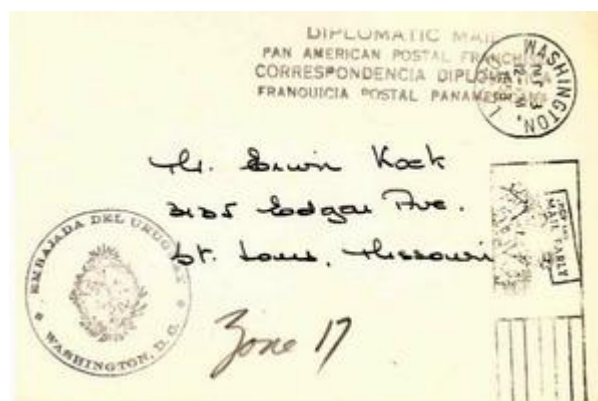 DIPLOMATIC MAIL
PAN AMERICAN POSTAL FRANCHISE
CORRESPONDENCIA DIPLOMATICA
FRANQUICIA POSTAL PANAMERICANA
WASHINGTON,
Mr. Erwin Kock
3135 Edgar Ave.
St. Louis, Missouri
EMBAJADA DEL URUGUAY
WASHINGTON, D.C.
MAIL EARLY
Zone 17